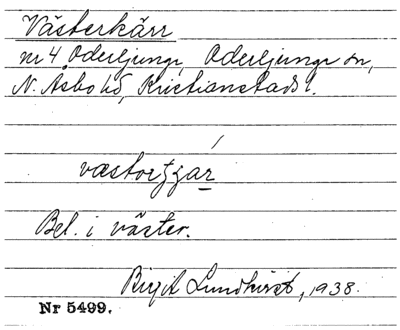 Västerkärr
nr 4 Oderljunga, Oderljunga sn,
N. Åsbo hd, Kristianstads l.
Bel. i väster.
Birgit Lundkvist, 1938.
Nr 5499.